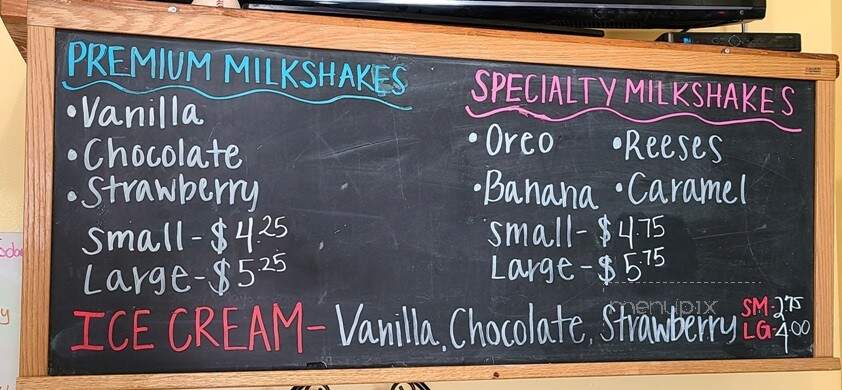 PREMIUM MILKSHAKES
• Vanilla
• Chocolate
• Strawberry
Small - $4.25
Large - $5.25
SPECIALTY MILKSHAKES
• Oreo • Reeses
• Banana • Caramel
Small - $4.75
Large - $5.75
ICE CREAM - Vanilla, Chocolate, Strawberry SM - 2.75
LG - 4.00
menupix